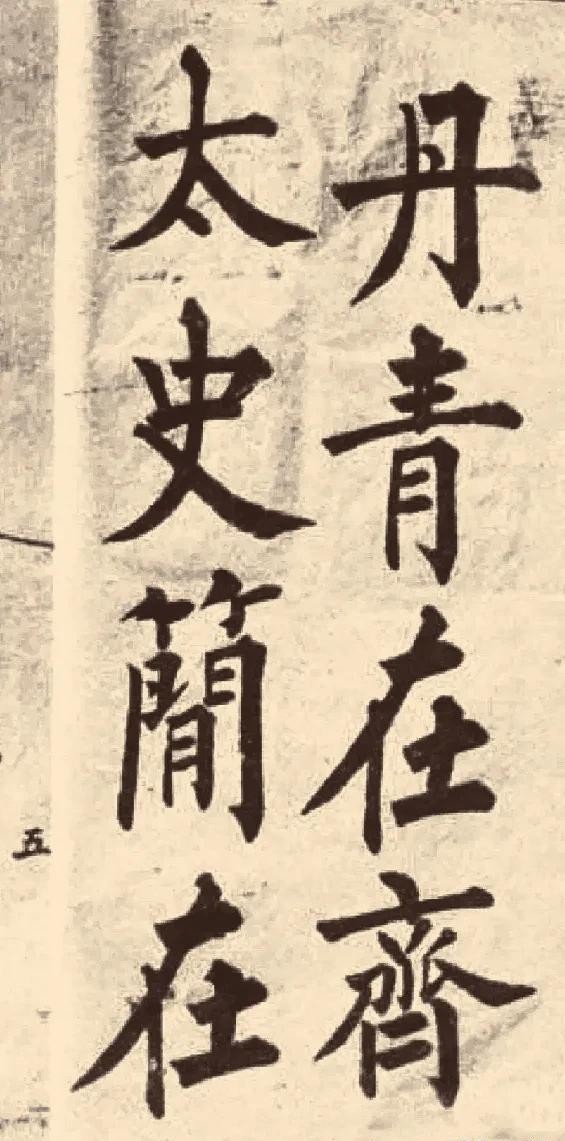 丹青在齊
太史簡在
五